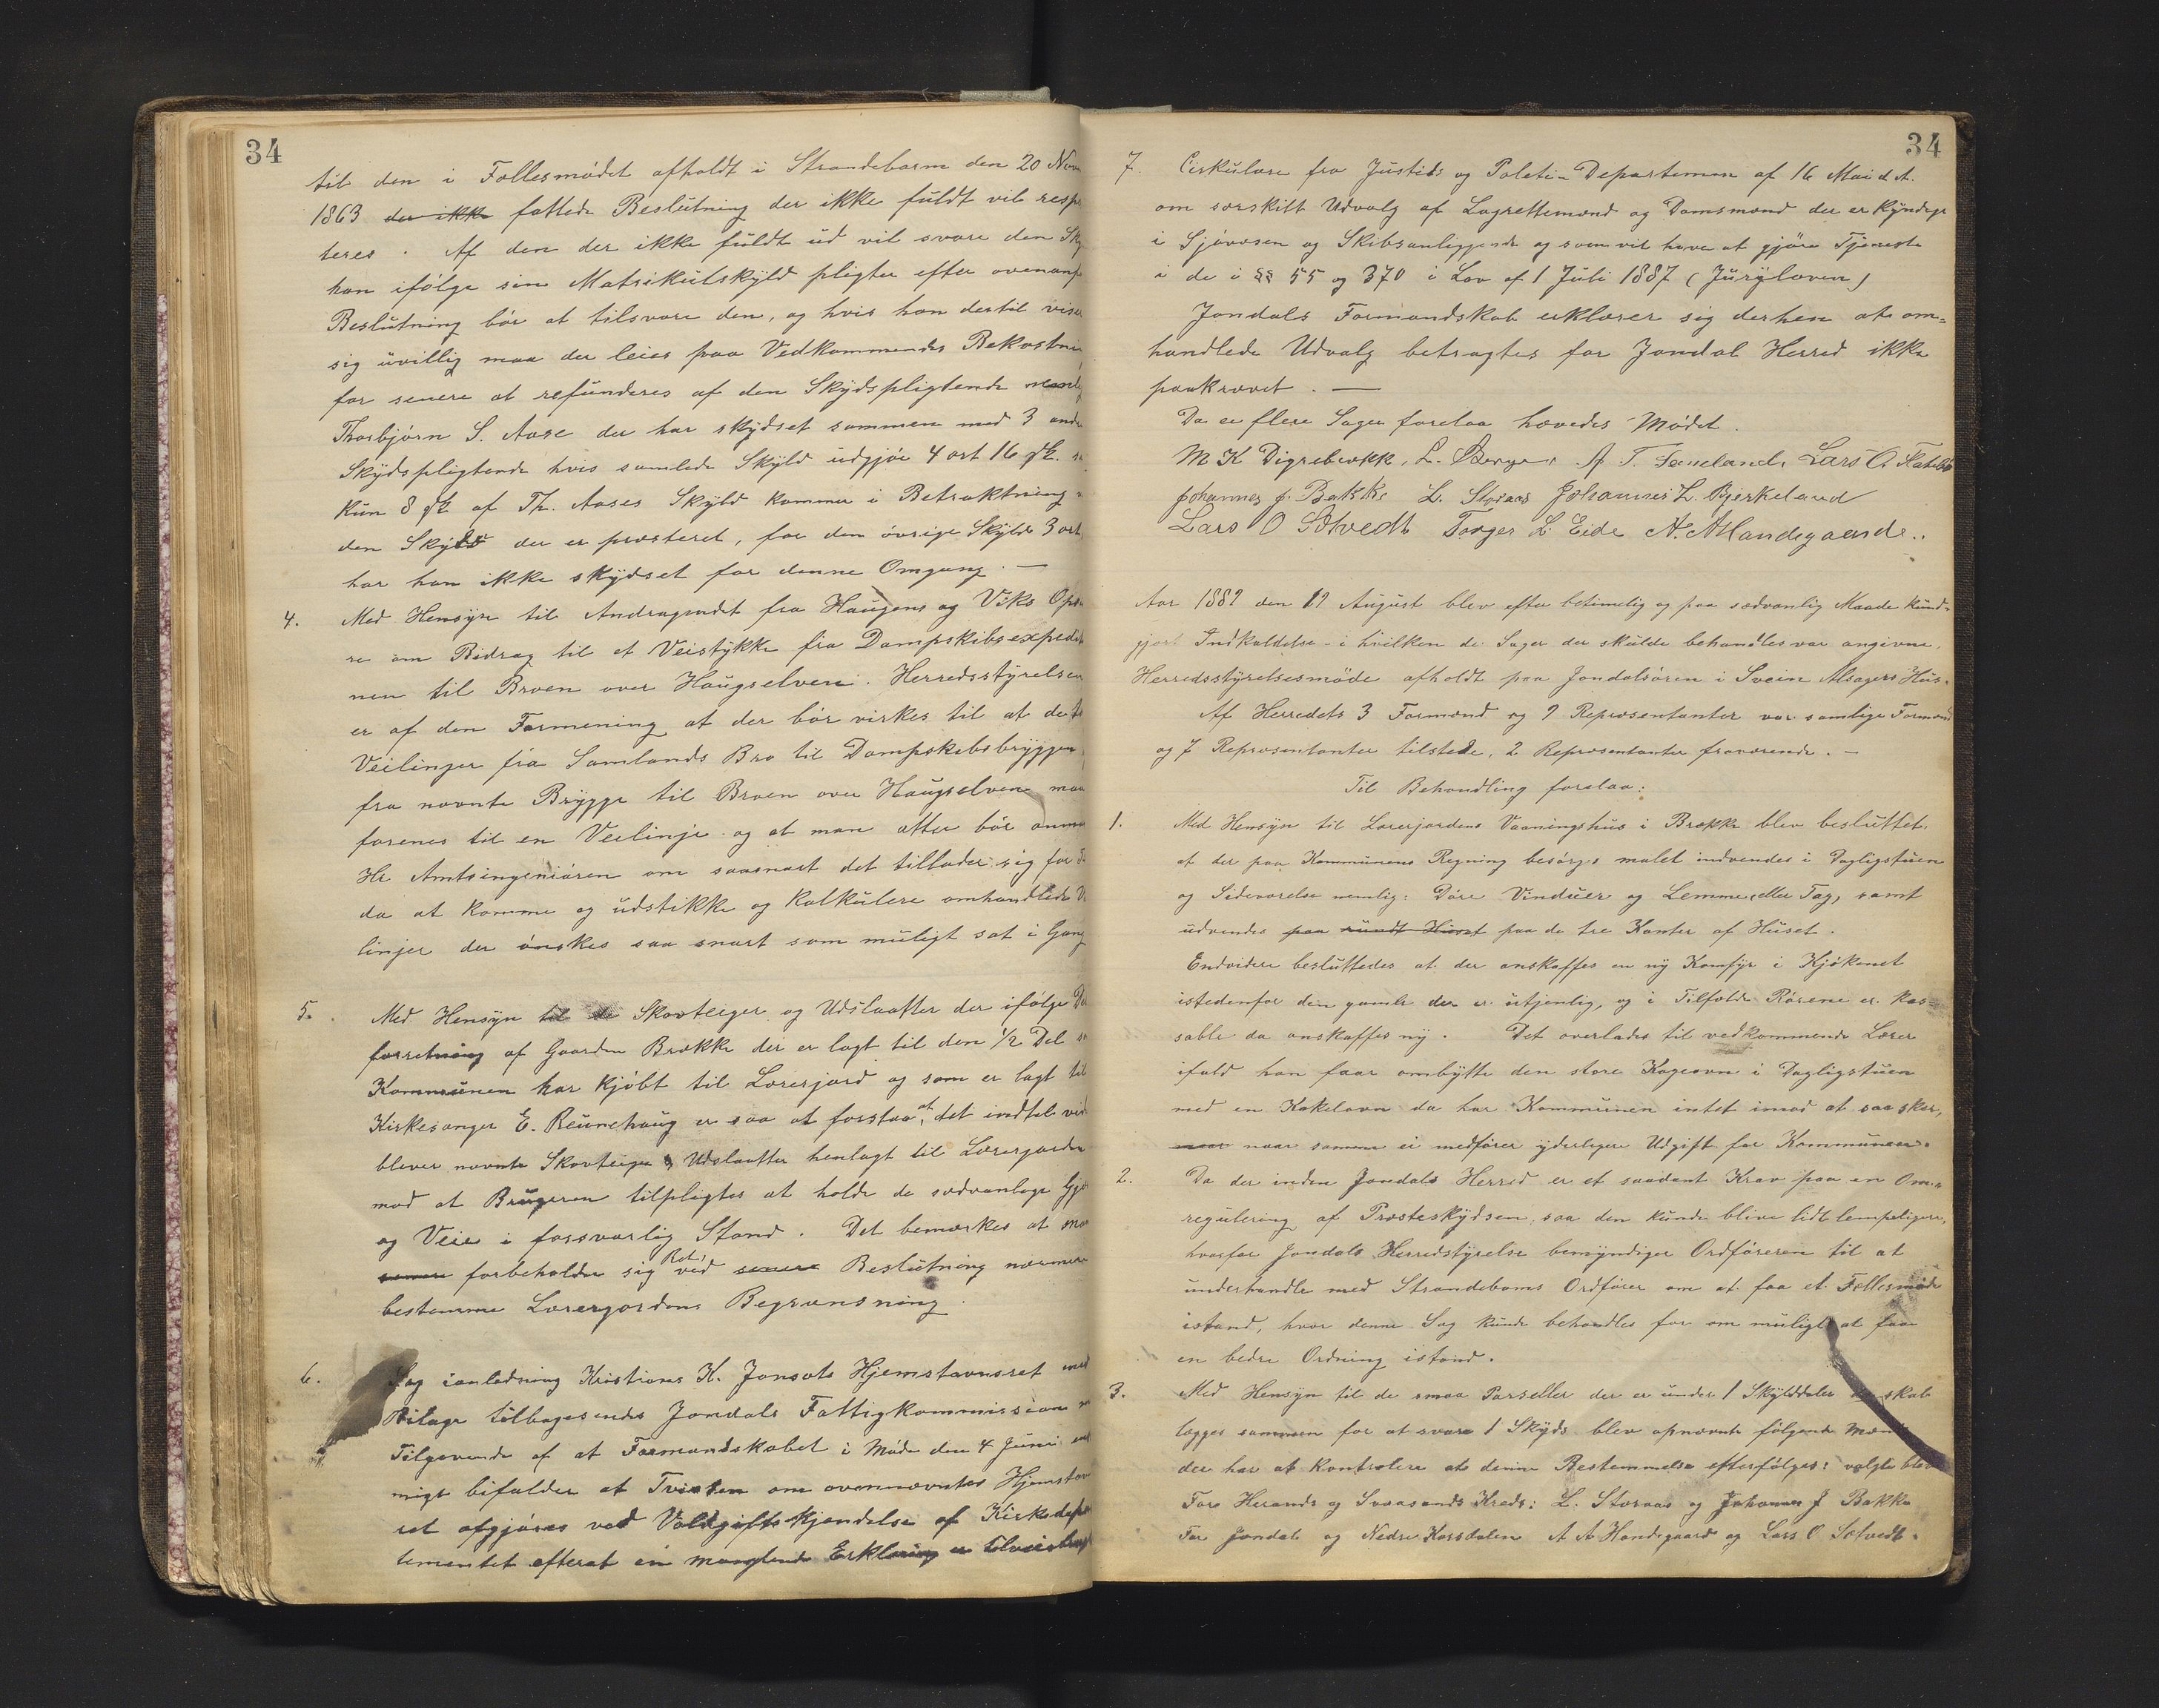 34
til den i Fællesmødet afholdt i Strandebarm den 20 Nov
1863 der ikke fattede Beslutning der ikke fuldt vil resp
teres. Af den der ikke fuldt ud vil svare den
han ifølge sin Matrikulskyld pligter efter
Beslutning bør at tilsvare den, og hvis han dertil viser
sig uvillig maa der leies paa Vedkommendes Bekostni
for senere at refunderes af den Skydspligtende
Thorbjørn S. Aase der har skydset sammen med 3 andre
Skydspligtende hvis samlede Skyld udgjør 4 ort 16 sk.
kun 8 sk af Th. Aases Skyld kommer i Betraktning
den Skyld der er præsteret, for den øvrige Skyld 3 ort
har han ikke skydset for denne Omgang. —
4. Med Hensyn til Andragendet fra Haugens og Viks
re om Bidrag til et Veistykke fra Dampskibsexpedit
nen til Broen over Haugselven. Herredsstyrelsen
er af den Formening at der bør virkes til at
Veilinjer fra Samlands Bro til Dampskibsbryggen
fra nævnte Brygge til Broen over Haugselven maa
forenes til en Veilinje og at man atter bør anmo
Hr Amtsingeniøren om saasnart det tillader sig for
da at komme og udstikke og kalkulere omhandlede
linjer der ønskes saa snart som muligt sat i Gang
5. Med Hensyn til de Skovteiger og Udslaatter der ifølge
forretning af Gaarden Brække der er lagt til den 1/2 Del
Kommunen har kjøbt til Lærerjord og som er lagt til
Kirkesanger E. Reunehaug er saa at forstaa, at det indtil
bliver nævnte Skovteiger og Udslaatter henlagt til Lærergarden
mod at Brugeren tilpligtes at holde de sædvanlige
og Veie i forsvarlig Stand. Det bemærkes at
senere forbeholder sig Ret ved senere Beslutning nærmere
bestemme Lærergordens Begrænsning.
6. Sag i anledning Kristianes K. Jonsats Hjemstavnsret med
Bilage tilbagesendes Jondals Fattigkommission
Tilgivende af at Formandskabet i Møde den 4 Juni
migt bifalder at Tvisten om ovennævntes Hjemstav
ret afgjøres ved Voldgiftskjendelse af Kirkedepar
tementet efterat en manglende Erklæring er
34
7. Cirkulære fra Justits og Poleti-Departemen af 16 Mai d. A.
om særskilt Udvalg af Lagrettemænd og Domsmænd der er kyndige
i Sjøvæsen og Skibsanliggende og som vil have at gjøre Tjeneste
i de i §§ 55 og 370 i Lov af 1 Juli 1887 (Juryloven)
Jondals Formandskab erklærer sig derhen at om-
handlede Udvalg betragtes for Jondal Herred ikke
paakrævet. —
Da ei flere Sager forelaa hævedes Mødet.
M K Digrebrækk, L. Berge, A T. Sameland, Lars O. Flatebø
Johannes J. Bakke L. Storaas Johannes L. Bjerkeland
Lars O Solvedt Torger L. Eide A. A Handegaard.
Aar 1889 den 19 August blev efter betimelig og paa sædvanlig Maade kund-
gjort Indkaldelse – i hvilken de Sager der skulde behandles var angivne,
Herredsstyrelsesmøde afholdt paa Jondalsøren i Svein Alsagers Hus.
Af Herredets 3 Formænd og 9 Repræsentanter var samtlige Formænd
og 7 Repræsentanter tilstede, 2 Repræsentanter fraværende. —
Til Behandling forelaa:
1. Med Hensyn til Lærerjordens Vaaningshus i Brække blev besluttet
at der paa Kommunens Regning besørges malet indvendes i Dagligstuen
og Sideværelse nemlig: Døre Vinduer og Lemme, eller Tag, samt
udvendes paa rundt Huset paa de tre Kanter af Huset.
Endvidere besluttedes at der anskaffes en ny Komfyr i Kjøkenet
istedenfor den gamle der er utjenlig, og i Tilfælde Rørene er kas-
sable da anskaffes ny. Det overlades til vedkommende Lærer
ifald han faar ombytte den store Kogeovn i Dagligstuen
med en Kakelovn da har Kommunen intet imod at saa sker,
naar naar samme ei medfører yderligere Udgift for Kommunen.
2. Da der inden Jondals Herred er et saadant Krav paa en Om-
regulering af Præsteskydsen, saa den kunde blive lidt lempeligere,
hvorfor Jondals Herredstyrelse bemyndiger Ordføreren til at
underhandle med Strandebarms Ordfører om at faa et Fællesmøde
istand, hvor denne Sag kunde behandles for om muligt at faa
en bedre Ordning istand.
3. Med Hensyn til de smaa Parseller der er under 1 Skylddaler skab
lægges sammen for at svare 1 Skyds blev opnævnte følgende Mænd
der har at kontrolere at denne Bestemmelse efterfølges: valgte blev
For Herands og Svaasands Kreds: L. Storaas og Johannes J Bakke
For Jondals og Nedre Krossdalen A A Handegaard og Lars O. Solvedt.